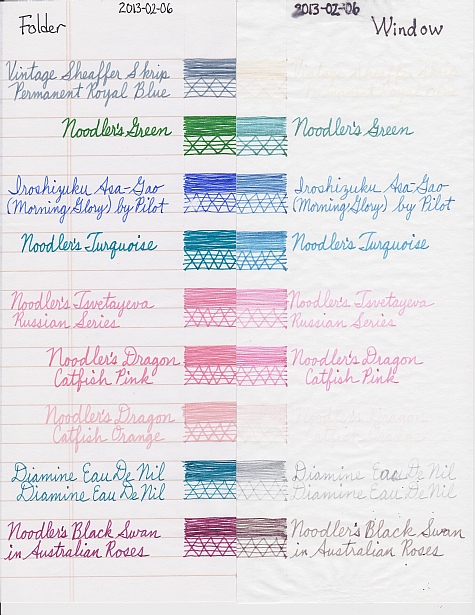 2013-02-06 2013-02-06
Folder Window
Vintage Sheaffer Skrip
Permanent Royal Blue
Noodler's Green Noodler's Green
Iroshizuku Asa-Gao Iroshizuku Asa-Gao
(Morning Glory) by Pilot (Morning Glory) by Pilot
Noodler's Turquoise Noodler's Turquoise
Noodler's Tsvetayeva Noodler's Tsvetayeva
Russian Series Russian Series
Noodler's Dragon Noodler's Dragon
Catfish Pink Catfish Pink
Noodler's Dragon
Catfish Orange
Diamine Eau De Nil Diamine Eau De Nil
Diamine Eau De Nil Diamine Eau De Nil
Noodler's Black Swan Noodler's Black Swan
in Australian Roses in Australian Roses